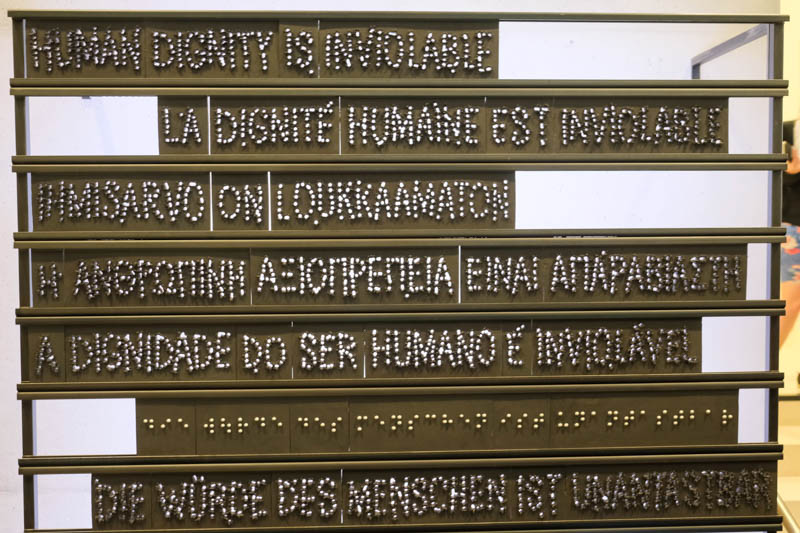 HUMAN DIGNITY IS INVIOLABLE
LA DIGNITÉ HUMAINE EST INVIOLABLE
IHMISARVO ON LOUKKAAMATON
Η ΑΝΘΡΩΠΙΝΗ ΑΞΙΟΠΡΕΠΕΙΑ ΕΙΝΑΙ ΑΠΑΡΑΒΙΑΣΤΗ
A DIGNIDADE DO SER HUMANO É INVIOLÁVEL
DIE WÜRDE DES MENSCHEN IST UNANTASTBAR